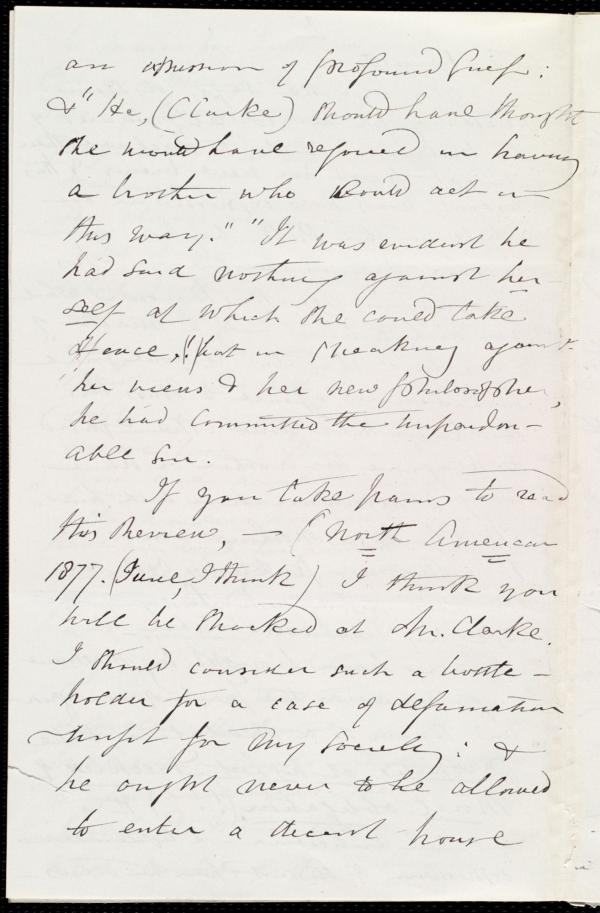 an expression of profound grief:
& "He, (Clarke) should have thought
she would have rejoiced in having
a brother who could act in
this way." "It was evident he
had said nothing against her-
self at which she could take
offence," but in speaking against
her views & her new philosopher,
he had committed the unpardon-
able sin.
If you take pains to read
this Review, — (North American
1877. (June, I think) I think you
will be shocked at Mr. Clarke.
I should consider such a bottle-
holder for a case of defamation
unfit for my society: &
he ought never to be allowed
to enter a decent house